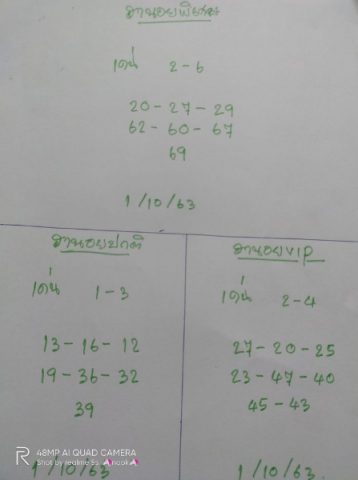 ฮานอยพิเศษ
เด่น 2-6
20-27-29
62-60-67
69
1/10/63
ฮานอยปกติ
เด่น 1-3
13-16-12
19-36-32
39
1/10/63
ฮานอยVIP
เด่น 2-4
27-20-25
23-47-40
45-43
1/10/63
48MP AI QUAD CAMERA
Shot by realme 5s